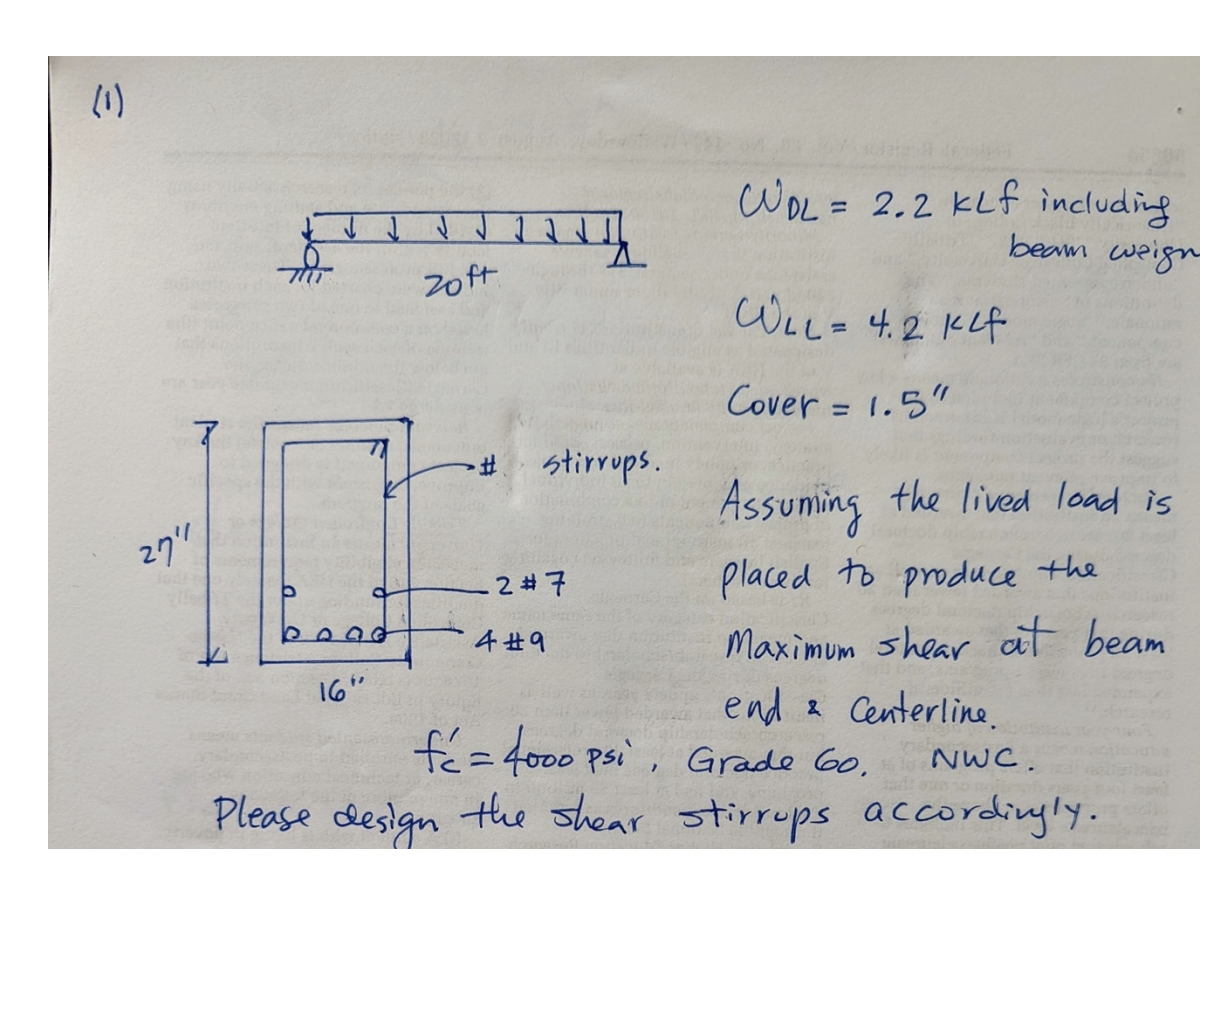 (1)
WDL = 2.2 KLf including
beam weign
20ft
WLL = 4.2 KLf
Cover = 1.5"
# stirrups.
Assuming the lived load is
27"
placed to produce the
2#7
Maximum shear at beam
4#9
16"
end & Centerline.
fc' = 4000 psi, Grade 60. NWC.
Please design the shear stirrups accordingly.